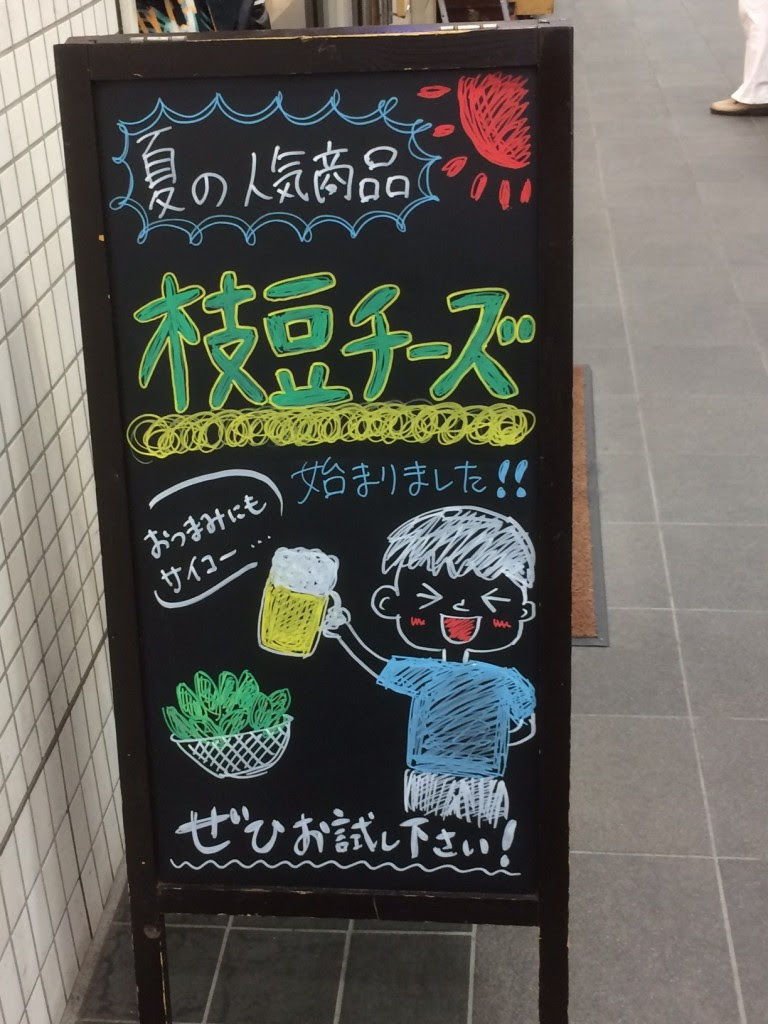 夏の人気商品
枝豆チーズ
始まりました!!
おつまみにも
サイコー…
ぜひお試し下さい!